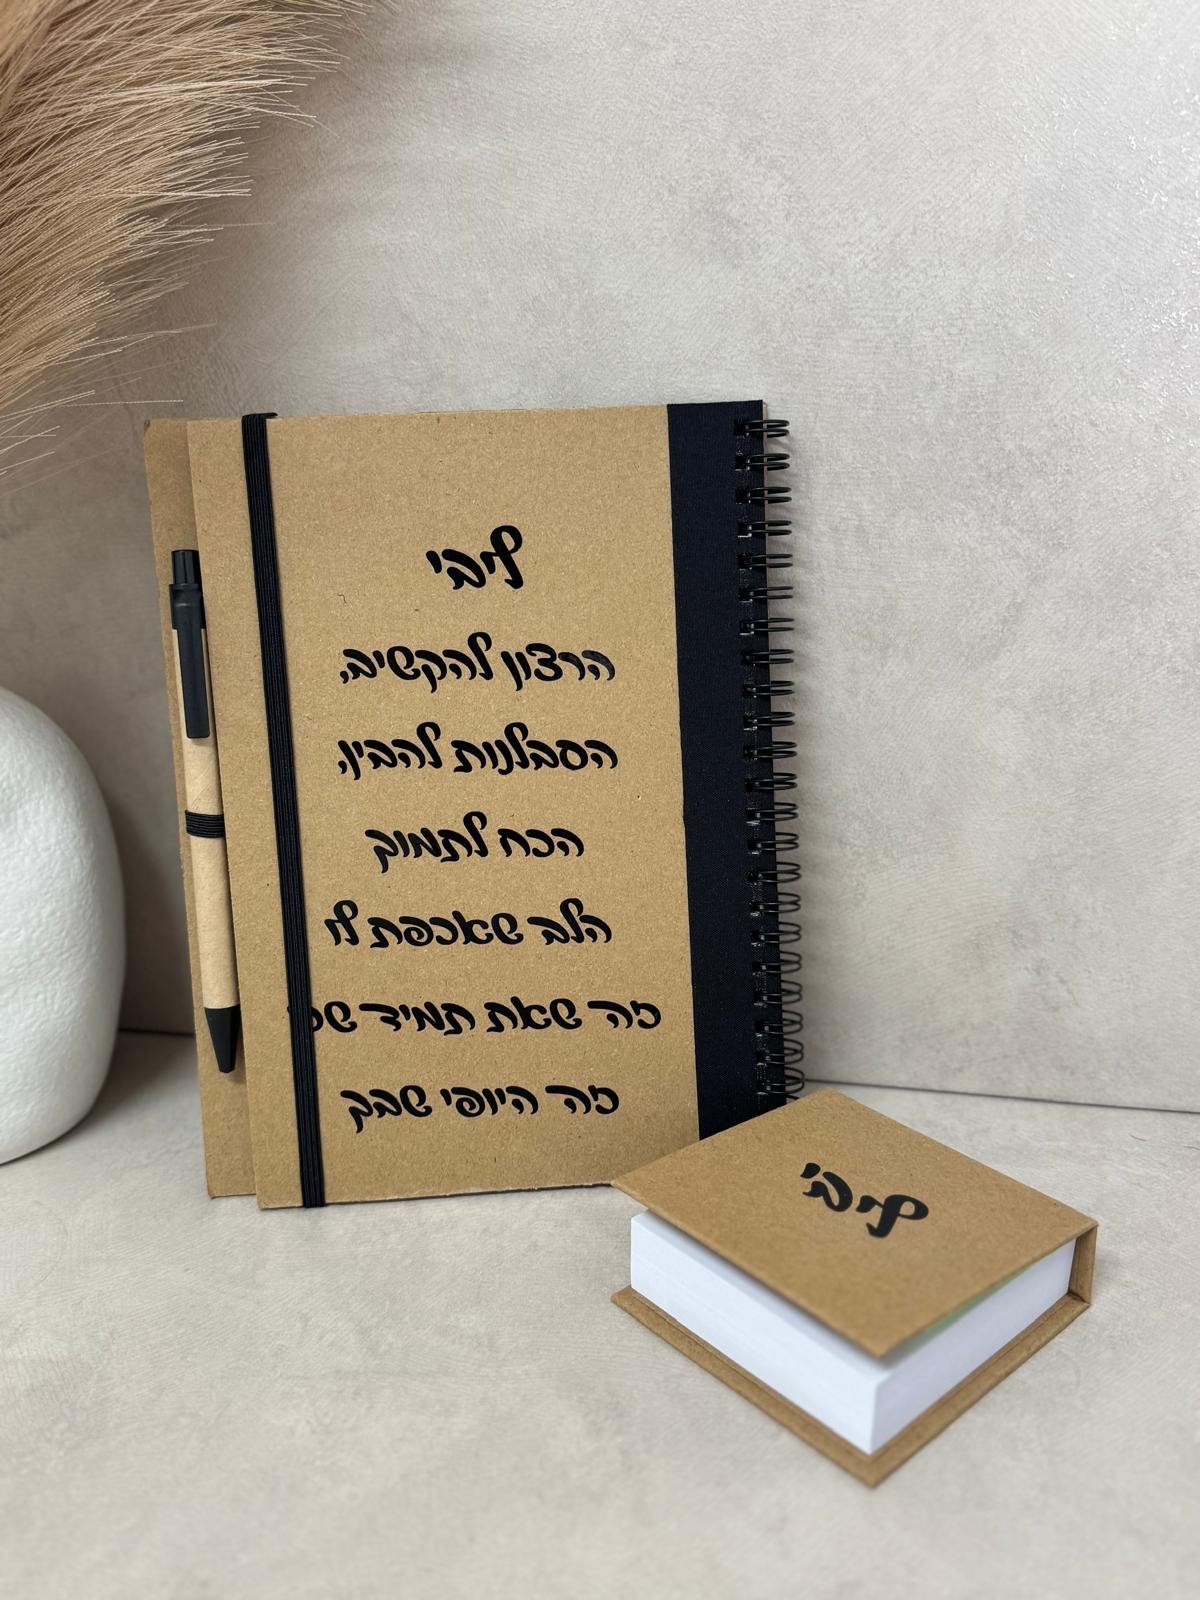 ליבי
הרצון להקשיב,
הסבלנות להבין,
הכח לתמוך
הלב שאכפת לו
זה שאת תמיד שם
זה היופי שבך
ליבי